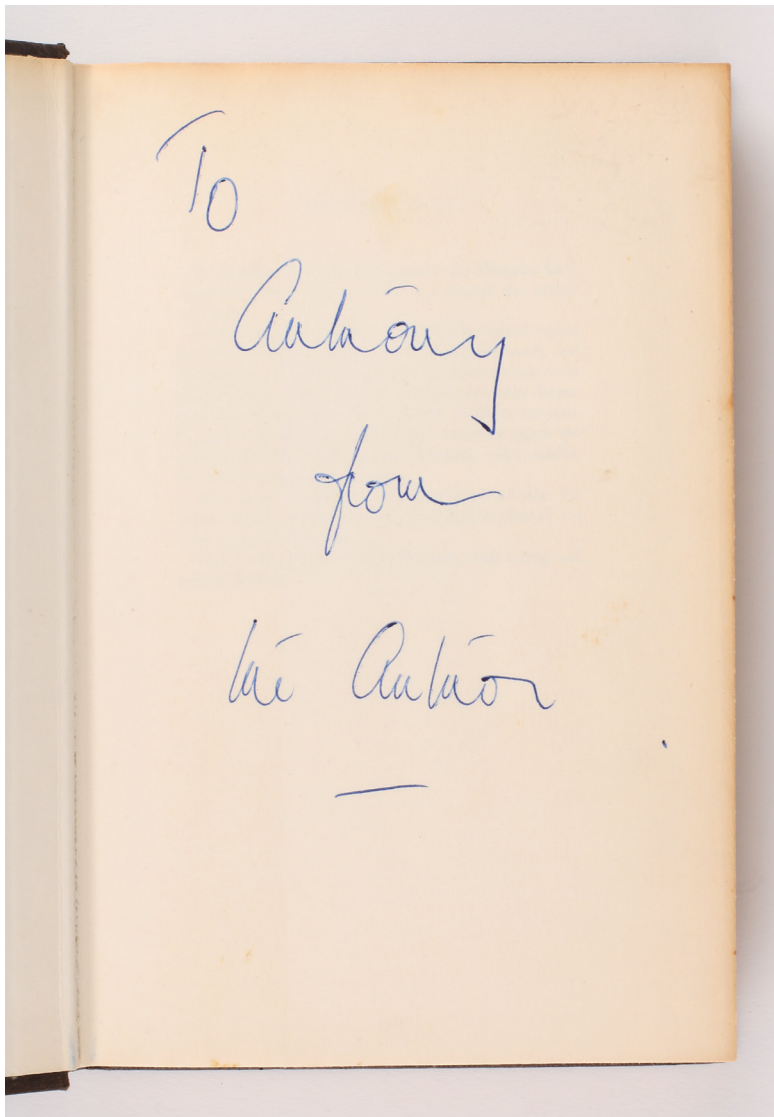 To
Anthony
from
the Author